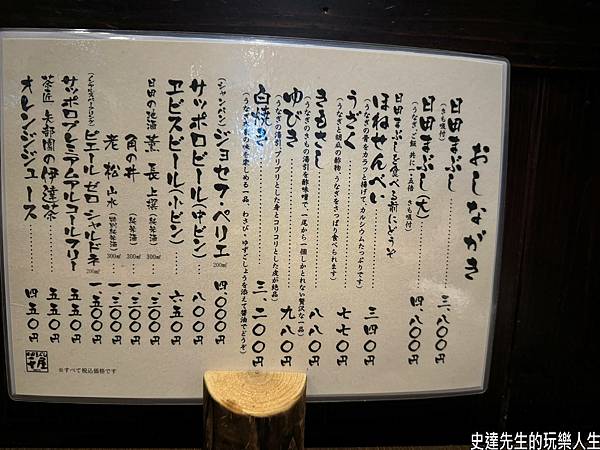 おしながき
日田まぶし 三、八〇〇円
(きも吸付)
日田まぶし(大) 四、八〇〇円
(うなぎ、ご飯 共に一・五倍 きも吸付)
日田まぶしを食べる前にどうぞ
ほねせんべい 三四〇円
(うなぎの骨をカラッと揚げて、カルシウムたっぷりです)
うざく 七七〇円
(うなぎと胡瓜の酢物、うなぎをさっぱり食べられます)
きもさし 八八〇円
(うなぎのきもの湯引を酢味噌で、一尾から一個しかとれない贅沢な一品)
ゆびき 九八〇円
(うなぎの湯引、プリプリとした身とコリコリとした皮が絶品)
白焼き 三、二〇〇円
(うなぎ本来の味を楽しめる一品、わさび・ゆずごしょうを添えて醤油でどうぞ)
(シャンパン)ジョセフ・ペリエ 200㎖ 四、〇〇〇円
サッポロビール(中ビン) 八〇〇円
ヱビスビール(小ビン) 六五〇円
日田の地酒 薫長 上撰 (純米酒) 300㎖ 一、三〇〇円
角の井 (純米酒) 300㎖ 一、三〇〇円
老松 山水 (特別純米酒) 300㎖ 一、三〇〇円
(ノンアルスパークリング)ピエール ゼロ シャルドネ 200㎖ 一、五〇〇円
サッポロプレミアムアルコールフリー 五五〇円
茶匠 矢部園の伊達茶 五五〇円
オレンジジュース 四五〇円
※すべて税込価格です
史達先生的玩樂人生